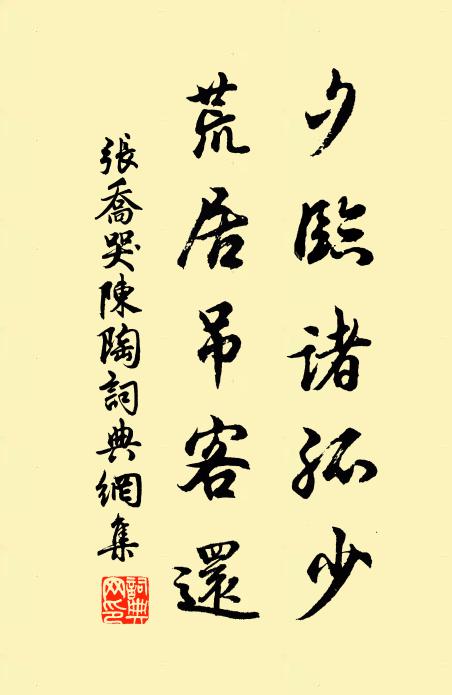 夕臨諸孤少
荒居吊客還
張喬哭陳陶詞典網集
詞典
网印